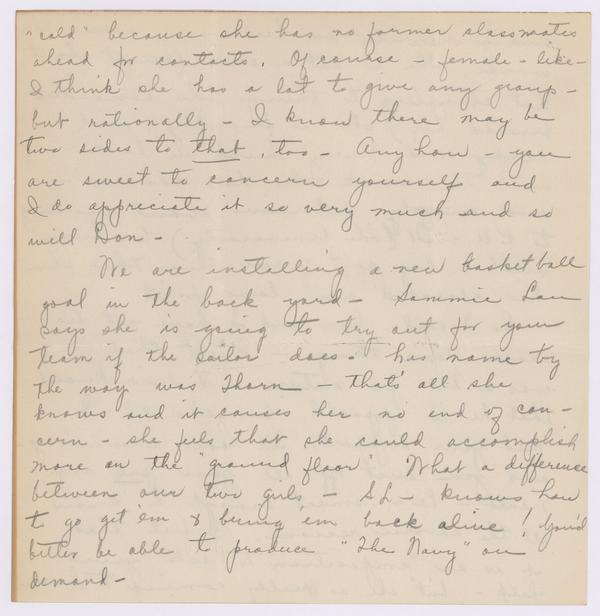 "cold" because she has no former classmates
ahead for contacts. Of course - female - like -
I think she has a lot to give any group -
but rationally - I know there may be
two sides to that, too - Anyhow - you
are sweet to concern yourself and
I do appreciate it so very much and so
will Don -
We are installing a new basketball
goal in the back yard - Sammie Lau
says she is going to try out for your
team if the sailor does. his name by
the way was Thorn - that's all she
knows and it causes her no end of con-
cern - she feels that she could accomplish
more on the "ground floor" What a difference
between our two girls - SL - knows how
to go get 'em & bring 'em back alive! You'd
better be able to produce "The Navy" on
demand -